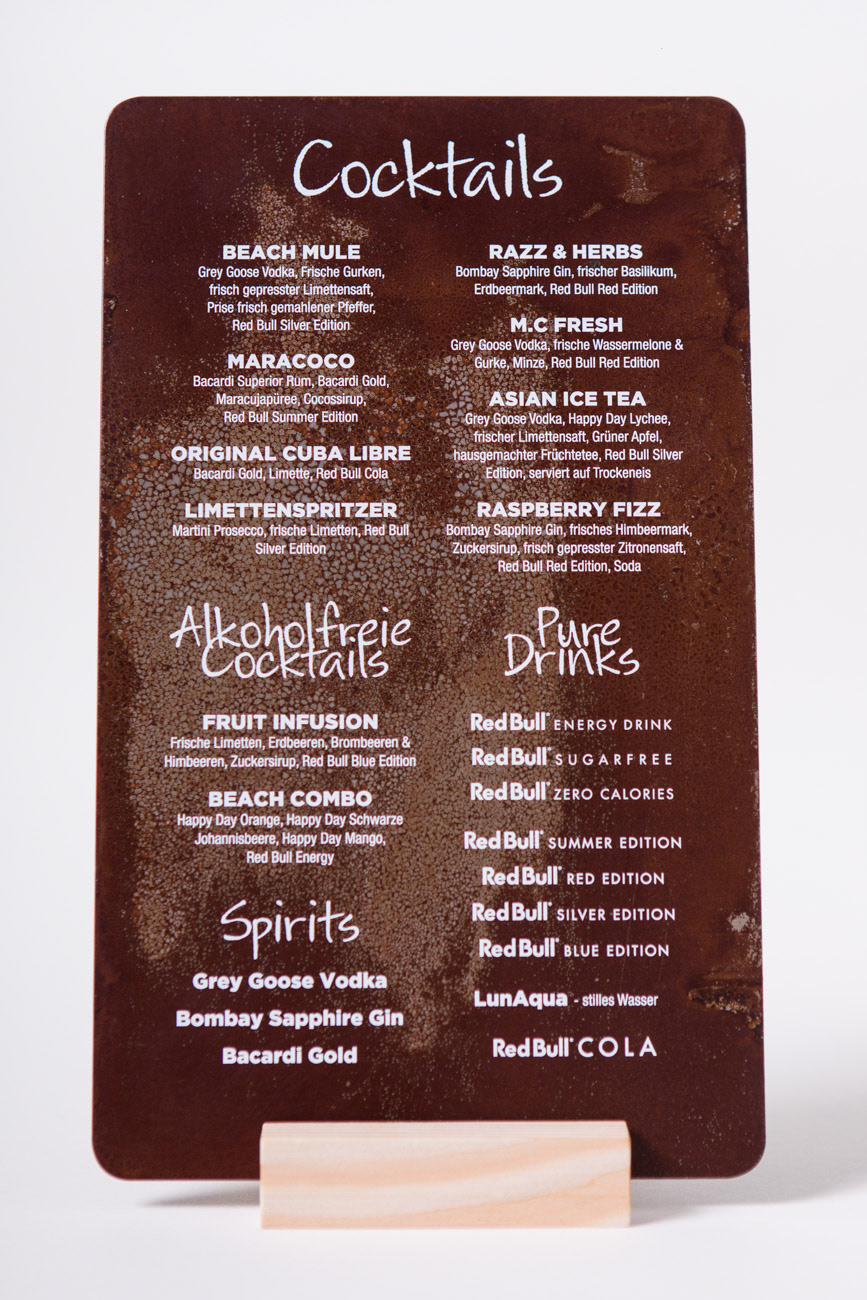 Cocktails
BEACH MULE
Grey Goose Vodka, Frische Gurken,
frisch gepresster Limettensaft,
Prise frisch gemahlener Pfeffer,
Red Bull Silver Edition
MARACOCO
Bacardi Superior Rum, Bacardi Gold,
Maracujapüree, Cocossirup,
Red Bull Summer Edition
ORIGINAL CUBA LIBRE
Bacardi Gold, Limette, Red Bull Cola
LIMETTENSPRITZER
Martini Prosecco, frische Limetten, Red Bull
Silver Edition
RAZZ & HERBS
Bombay Sapphire Gin, frischer Basilikum,
Erdbeermark, Red Bull Red Edition
M.C FRESH
Grey Goose Vodka, frische Wassermelone &
Gurke, Minze, Red Bull Red Edition
ASIAN ICE TEA
Grey Goose Vodka, Happy Day Lychee,
frischer Limettensaft, Grüner Apfel,
hausgemachter Früchtetee, Red Bull Silver
Edition, serviert auf Trockeneis
RASPBERRY FIZZ
Bombay Sapphire Gin, frisches Himbeermark,
Zuckersirup, frisch gepresster Zitronensaft,
Red Bull Red Edition, Soda
Alkoholfreie
Cocktails
FRUIT INFUSION
Frische Limetten, Erdbeeren, Brombeeren &
Himbeeren, Zuckersirup, Red Bull Blue Edition
BEACH COMBO
Happy Day Orange, Happy Day Schwarze
Johannisbeere, Happy Day Mango,
Red Bull Energy
Spirits
Grey Goose Vodka
Bombay Sapphire Gin
Bacardi Gold
Pure
Drinks
Red Bull ENERGY DRINK
Red Bull SUGARFREE
Red Bull ZERO CALORIES
Red Bull SUMMER EDITION
Red Bull RED EDITION
Red Bull SILVER EDITION
Red Bull BLUE EDITION
LunAqua - stilles Wasser
Red Bull COLA